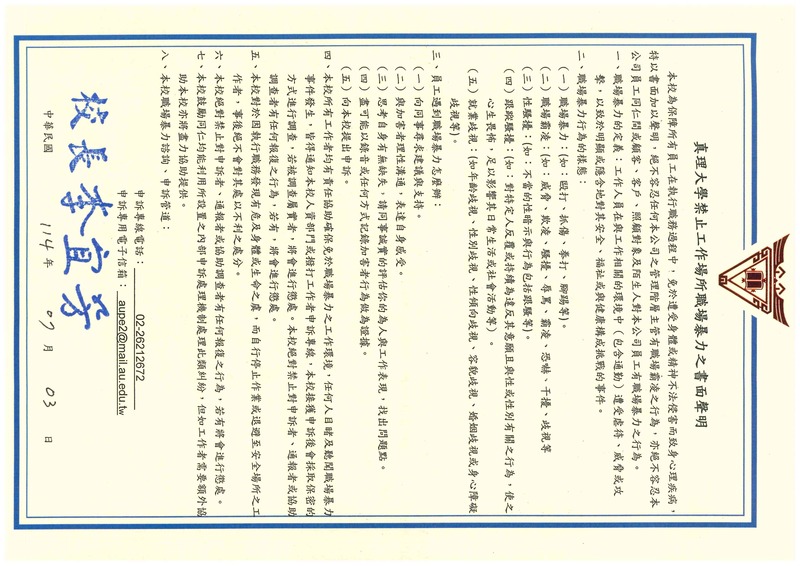 真理大學禁止工作場所職場暴力之書面聲明
本校為保障所有員工在執行職務過程中，免於遭受身體或精神不法侵害而致身心理疾病，
特以書面加以聲明，絕不容忍任何本公司之管理階層主管有職場霸凌之行為，亦絕不容忍本
公司員工同仁間或顧客、客戶、照顧對象及陌生人對本公司員工有職場暴力之行為。
一、職場暴力的定義：工作人員在與工作相關的環境中（包含通勤）遭受虐待、威脅或攻
擊，以致於明顯或隱含地對其安全、福祉或與健康構成挑戰的事件。
二、職場暴力行為的樣態：
（一）職場暴力：(如：毆打、抓傷、拳打、腳踢等)。
（二）職場霸凌：(如：威脅、欺凌、騷擾、辱罵、霸凌、恐嚇、干擾、歧視等
（三）性騷擾：(如：不當的性暗示與行為包括跟騷等)。
（四）跟蹤騷擾：(如：對特定人反覆或持續為違反其意願且與性或性別有關之行為，使之
心生畏怖，足以影響其日常生活或社會活動等)。
（五）就業歧視：(如年齡歧視、性別歧視、性傾向歧視、容貌歧視、婚姻歧視或身心障礙
歧視等)。
三、員工遇到職場暴力怎麼辦：
（一）向同事尋求建議與支持。
（二）與加害者理性溝通，表達自身感受。
（三）思考自身有無缺失，請同事誠實的評估你的為人與工作表現，找出問題點。
（四）盡可能以錄音或任何方式記錄加害者行為做為證據。
（五）向本校提出申訴。
四、本校所有工作者均有責任協助確保免於職場暴力之工作環境，任何人目睹及聽聞職場暴力
事件發生，皆得通知本校人資部門或撥打工作者申訴專線，本校接獲申訴後會採取保密的
方式進行調查，若被調查屬實者，將會進行懲處。本校絕對禁止對申訴者、通報者或協助
調查者有任何報復之行為，若有，將會進行懲處。
五、本校對於因執行職務發現有危及身體或生命之虞，而自行停止作業或退避至安全場所之工
作者，事後絕不會對其處以不利之處分。
六、本校絕對禁止對申訴者、通報者或協助調查者有任何報復之行為，若有將會進行懲處。
七、本校鼓勵同仁均能利用所設置之內部申訴處理機制處理此類糾紛，但如工作者需要額外協
助本校亦將盡力協助提供。
八、本校職場暴力諮詢、申訴管道：
申訴專線電話：02-26212672
申訴專用電子信箱：aupe2@mail.au.edu.tw
校長李宜芳
中華民國 114 年 07 月 03 日